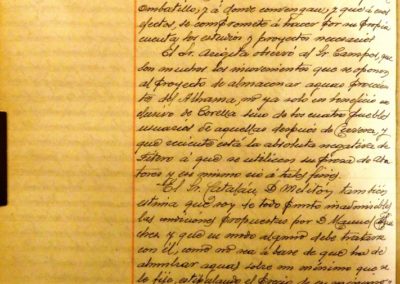 Embatillo, y á donde convengan, y que á esos
efectos, se compromete á hacer por su propia
cuenta los estudios y proyectos necesarios
El Sr. observó al Sr. Campos, que
son muchos los inconvenientes que se oponen
al proyecto de almacenar aguas
del Alhama, no ya solo en beneficio
de Corella sino de los cuatro pueblos
usuarios de aquellas después de Cervera, y
que está la absoluta negativa de
Fitero á que se utilicen su presa
y eso mismo
El Sr. Catalán, D. Melitón, también
estima que son de todo punto inadmisibles
las condiciones propuestas por D. Manuel
y que en modo alguno debe tratarse
con él, como no sea á base de que ha de
alumbrar aguas sobre un mínimo que se
le fije, estipulando el precio de